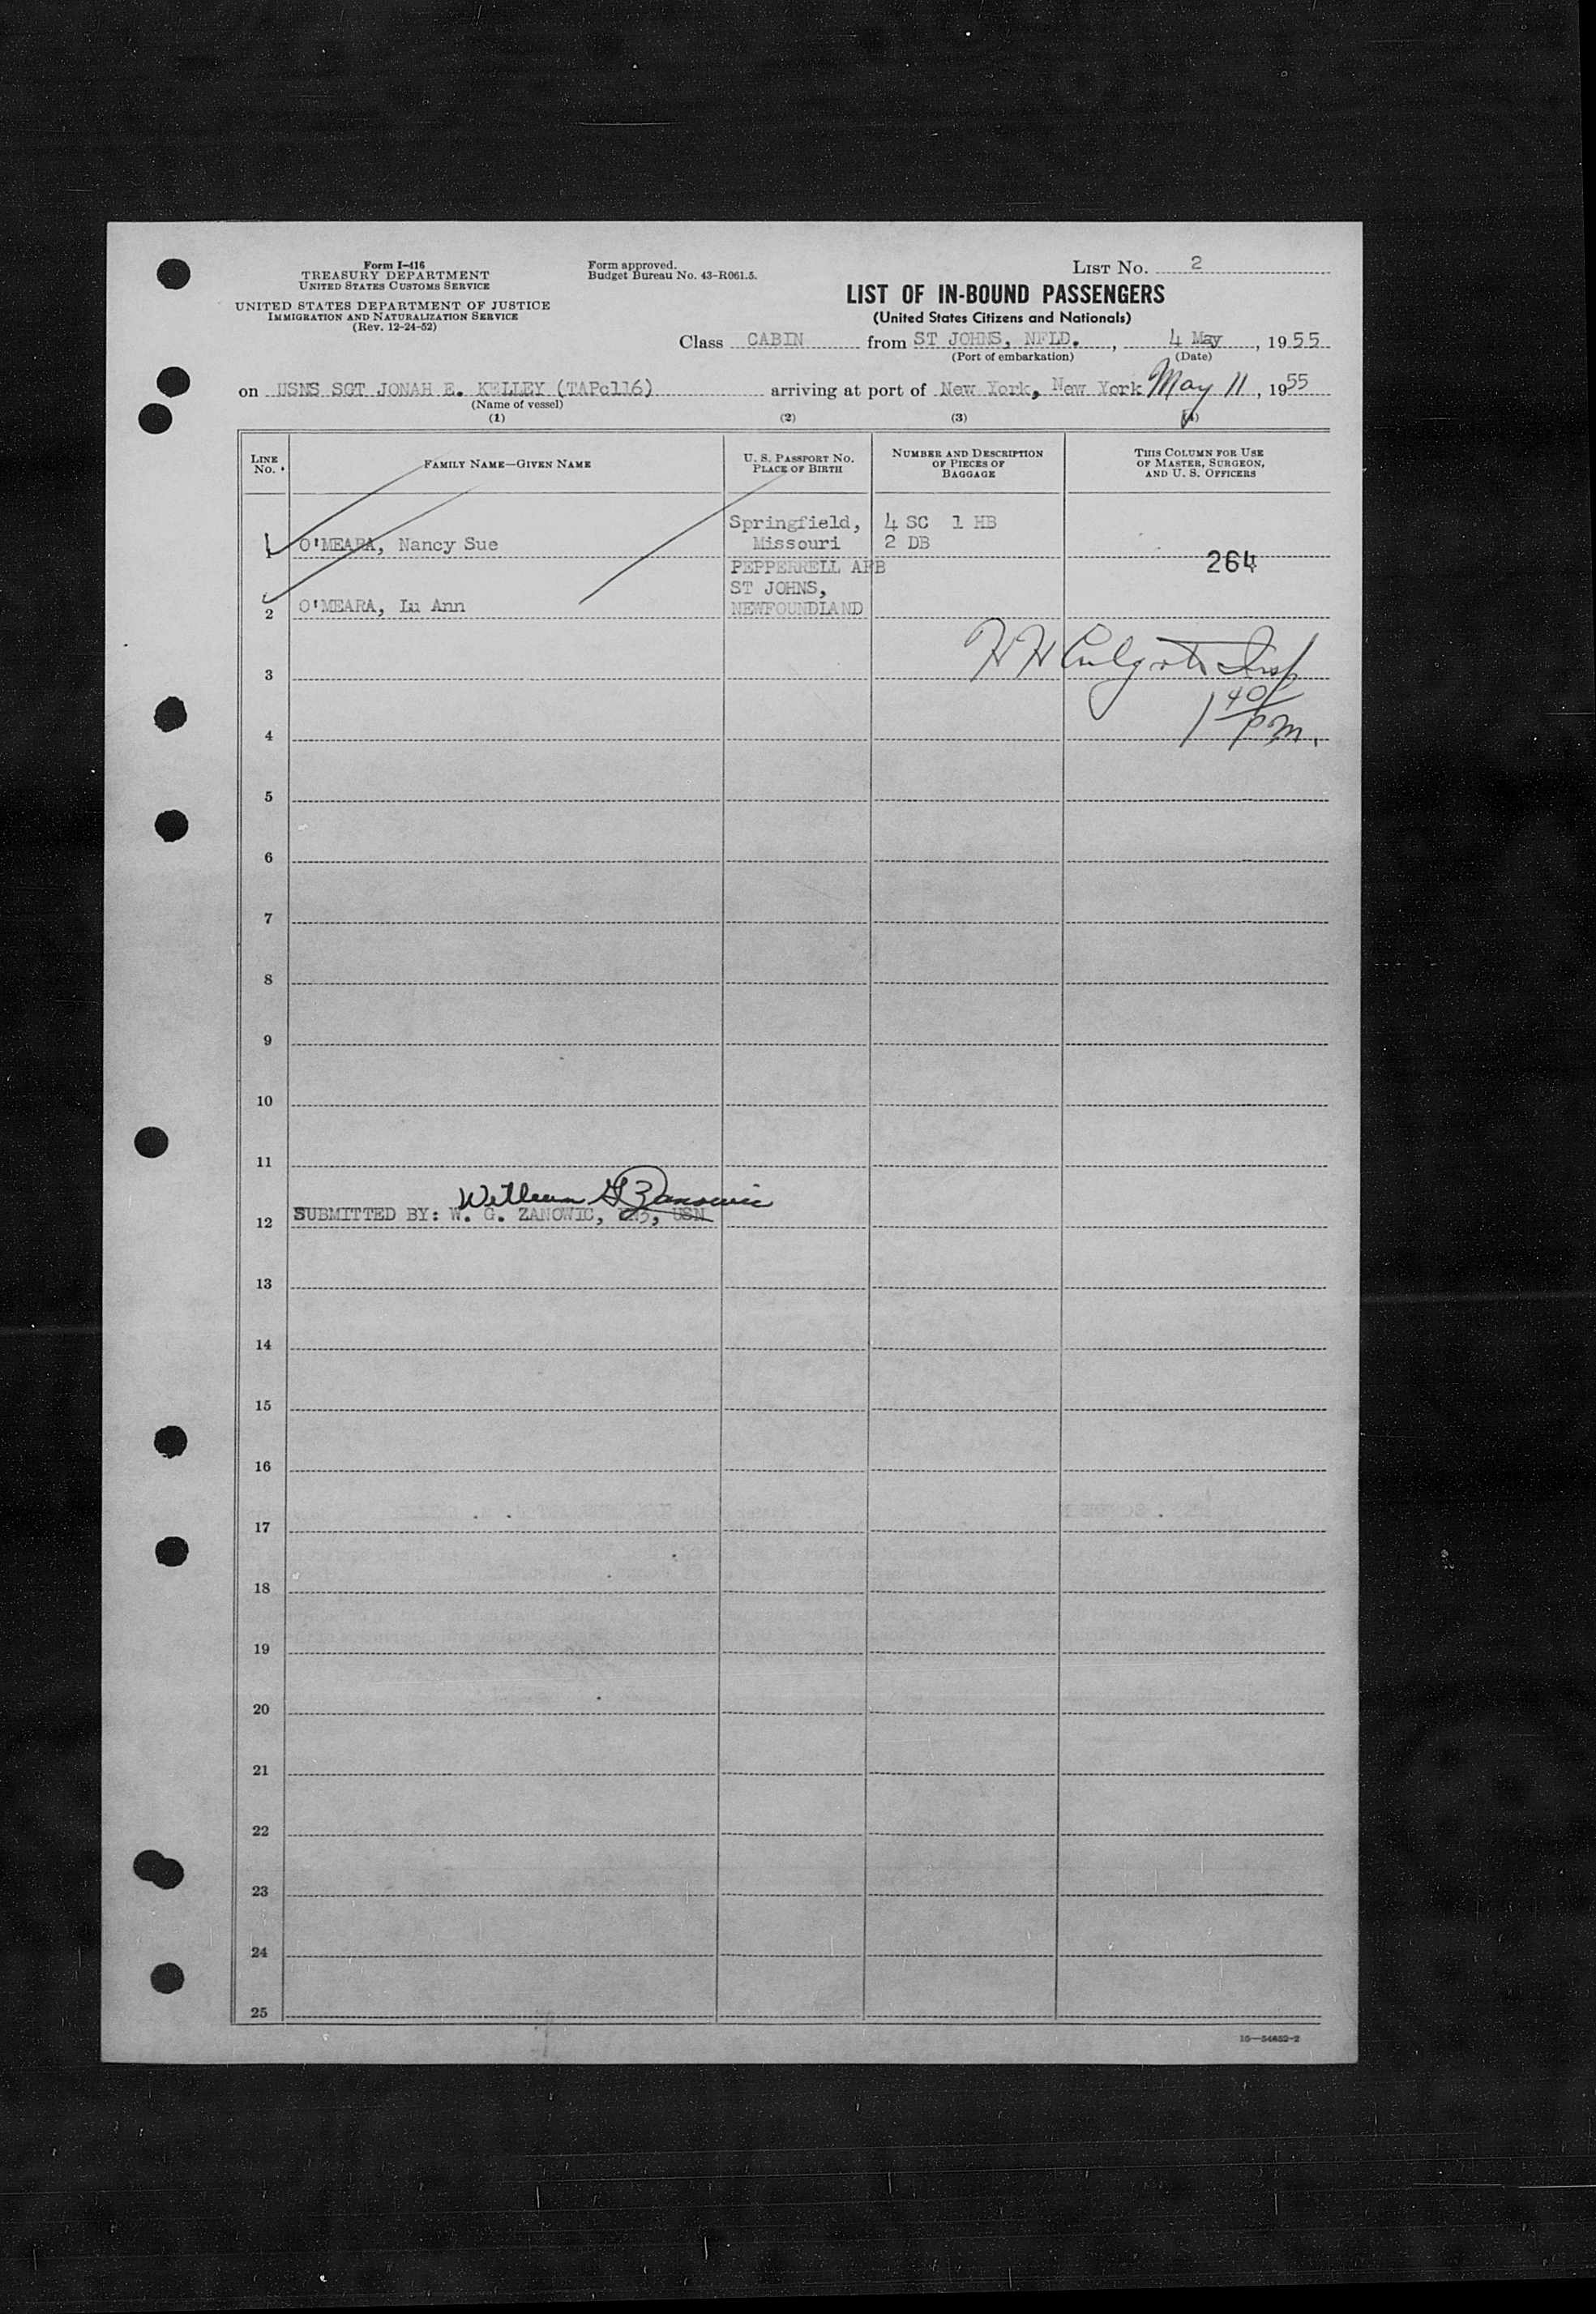 Form I-416
TREASURY DEPARTMENT
UNITED STATES CUSTOMS SERVICE
UNITED STATES DEPARTMENT OF JUSTICE
IMMIGRATION AND NATURALIZATION SERVICE
(Rev. 12-24-52)
Form approved.
Budget Bureau No. 43-R061.5.
LIST No. 2
LIST OF IN-BOUND PASSENGERS
(United States Citizens and Nationals)
Class CABIN from ST JOHNS, NFLD., 4 May, 1955
(Port of embarkation) (Date)
on USNS SGT JONAH E. KELLEY (TAPc116) arriving at port of New York, New York May 11, 1955
(Name of vessel)
(1) (2) (3) (4)
LINE No. FAMILY NAME—GIVEN NAME U. S. PASSPORT NO. PLACE OF BIRTH NUMBER AND DESCRIPTION OF PIECES OF BAGGAGE THIS COLUMN FOR USE OF MASTER, SURGEON, AND U. S. OFFICERS
1 O'MEARA, Nancy Sue Springfield, Missouri 4 SC 1 HB 2 DB
264
2 O'MEARA, Lu Ann PEPPERRELL AFB ST JOHNS, NEWFOUNDLAND
H H Insp
3
1 40/PM.
4
5
6
7
8
9
10
11
William G Zanowic
12 SUBMITTED BY: W. G. ZANOWIC, USN
13
14
15
16
17
18
19
20
21
22
23
24
25
16—54652-2